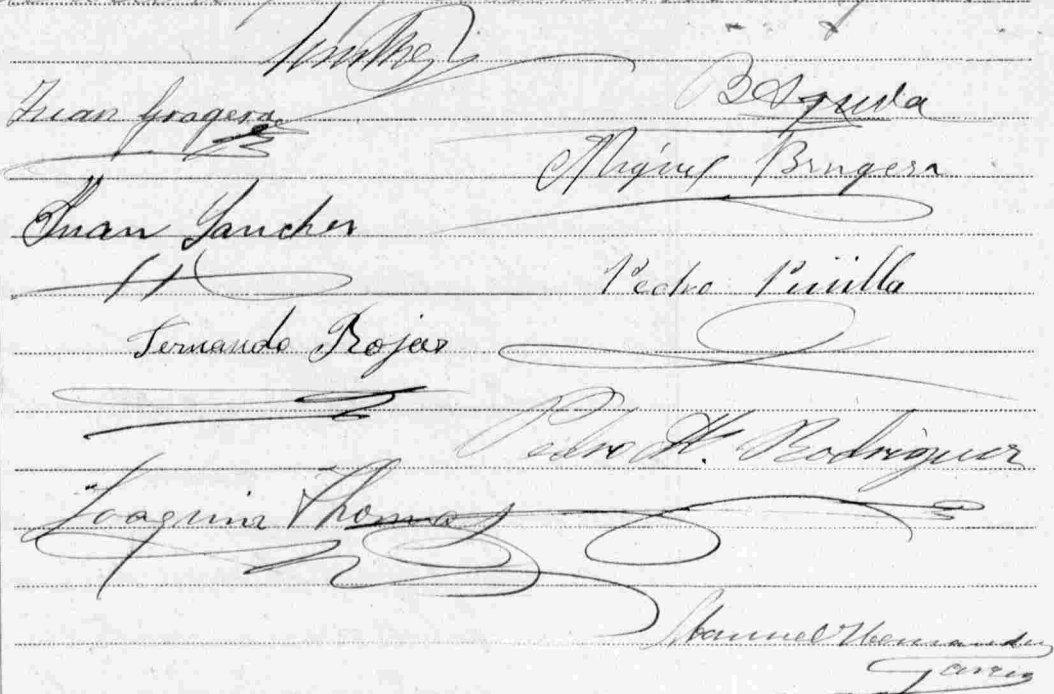 Juan Gragera
B Agueda
Miguel Brugera
Juan Sanchez
Pedro Pinilla
Fernando Rojas
Pedro H. Rodriguez
Joaquin Thomas
Manuel Hernandez
Garcia